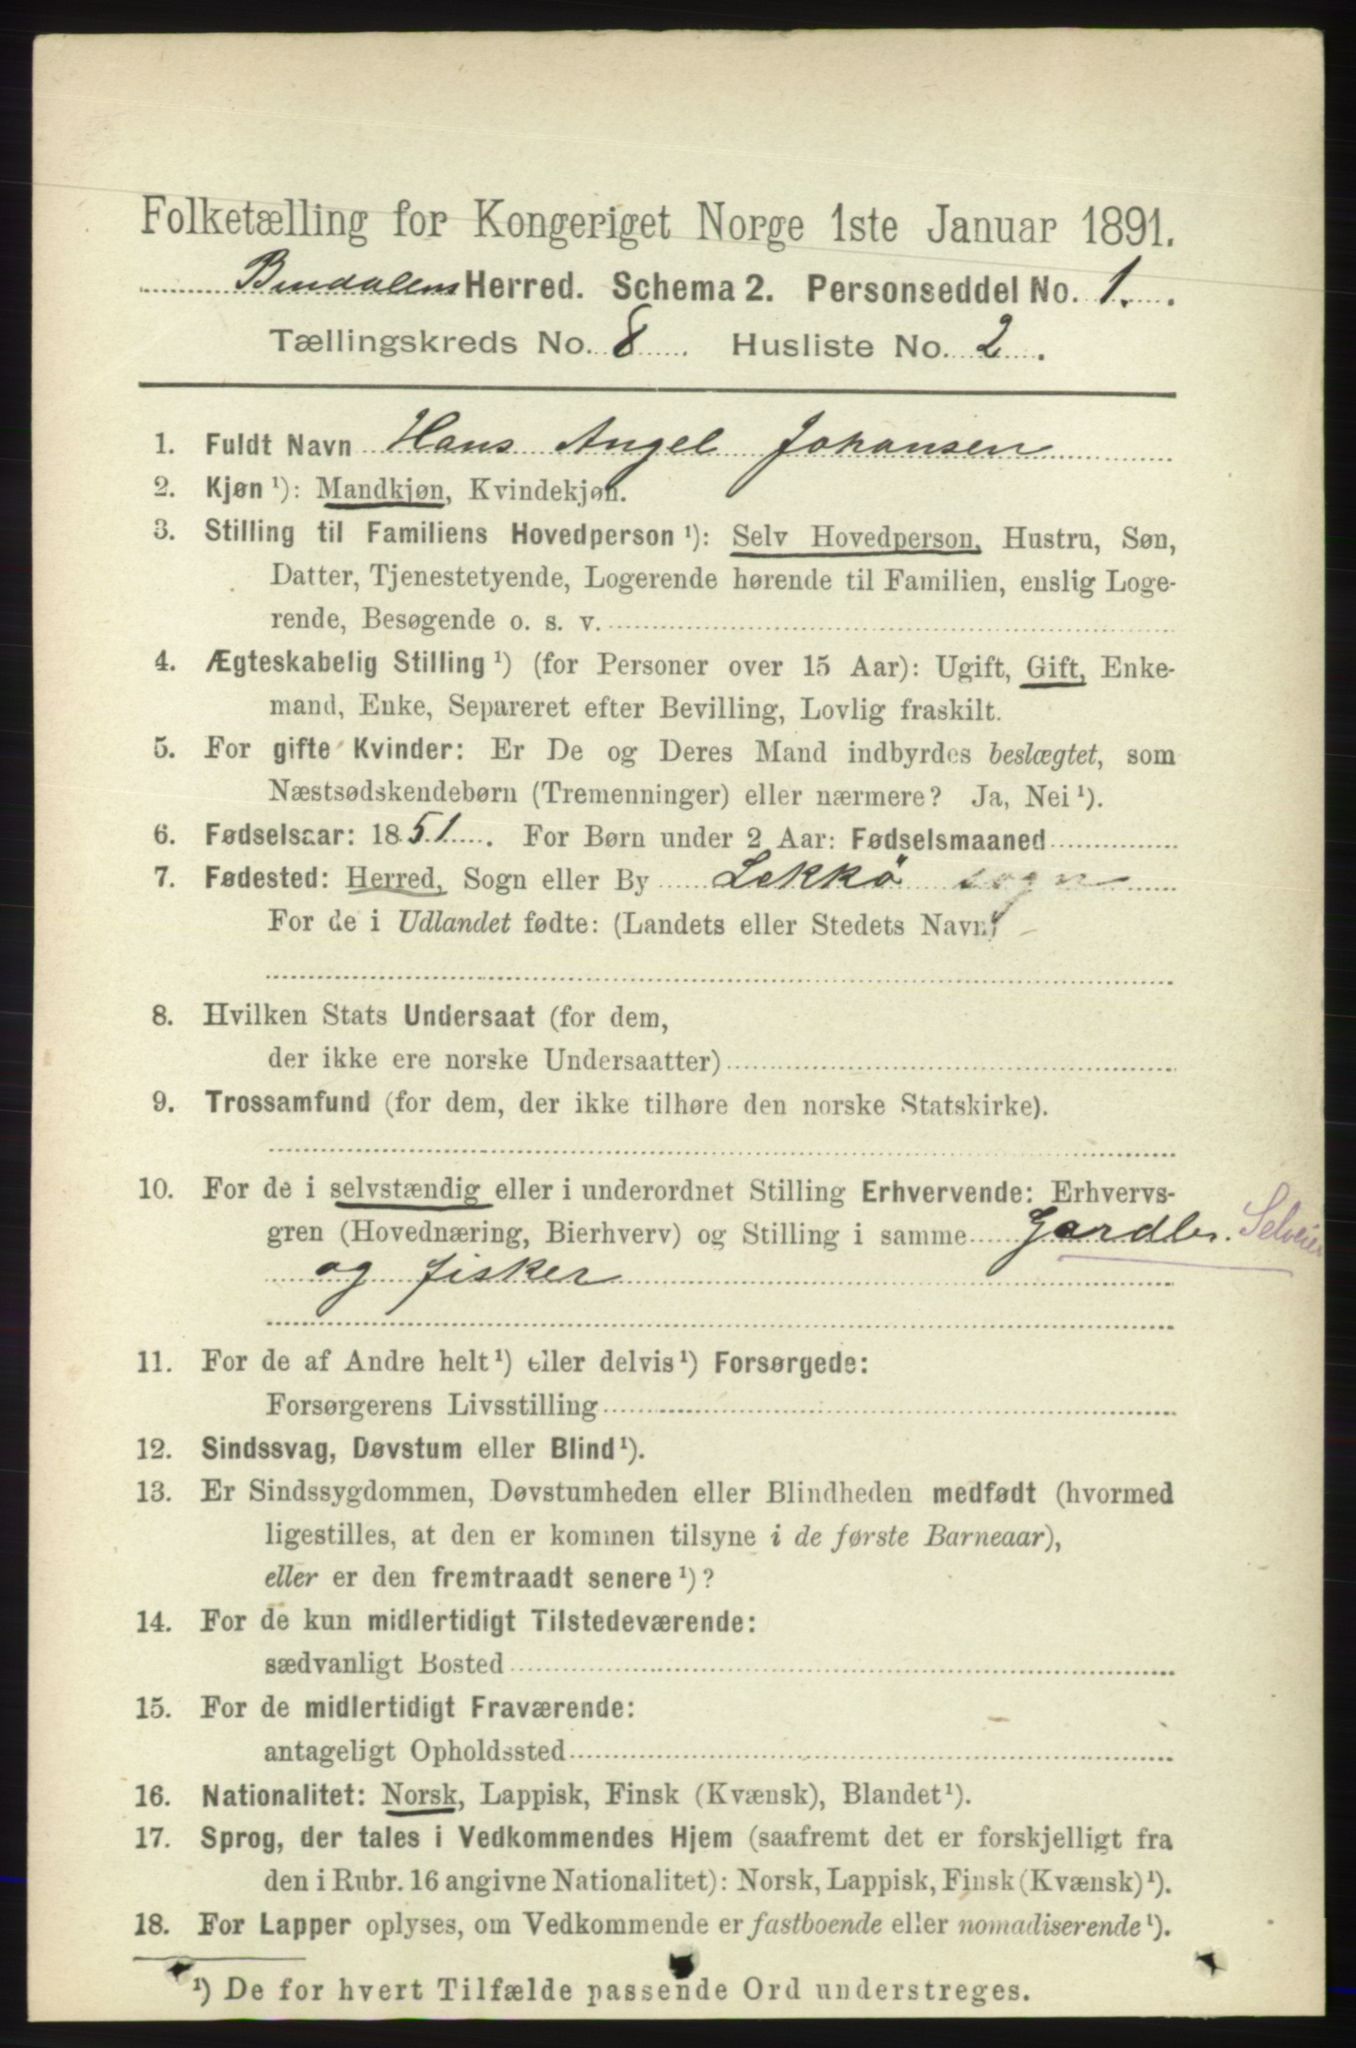 Folketælling for Kongeriget Norge 1ste Januar 1891.
Bindalens Herred. Schema 2. Personseddel No. 1.
Tællingskreds No. 8. Husliste No. 2.
1. Fuldt Navn Hans Angel Johansen
2. Kjøn ¹): Mandkjøn, Kvindekjøn.
3. Stilling til Familiens Hovedperson ¹): Selv Hovedperson, Hustru, Søn,
Datter, Tjenestetyende, Logerende hørende til Familien, enslig Loge-
rende, Besøgende o. s. v.
4. Ægteskabelig Stilling ¹) (for Personer over 15 Aar): Ugift, Gift, Enke-
mand, Enke, Separeret efter Bevilling, Lovlig fraskilt.
5. For gifte Kvinder: Er De og Deres Mand indbyrdes beslægtet, som
Næstsødskendebørn (Tremenninger) eller nærmere? Ja, Nei ¹).
6. Fødselsaar: 1851. For Børn under 2 Aar: Fødselsmaaned
7. Fødested: Herred, Sogn eller By Lekkö sogn
For de i Udlandet fødte: (Landets eller Stedets Navn)
8. Hvilken Stats Undersaat (for dem,
der ikke ere norske Undersaatter)
9. Trossamfund (for dem, der ikke tilhøre den norske Statskirke).
10. For de i selvstændig eller i underordnet Stilling Erhvervende: Erhvervs-
gren (Hovednæring, Bierhverv) og Stilling i samme Gardbr. Selveier
og fisker
11. For de af Andre helt ¹) eller delvis ¹) Forsørgede:
Forsørgerens Livsstilling
12. Sindssvag, Døvstum eller Blind ¹).
13. Er Sindssygdommen, Døvstumheden eller Blindheden medfødt (hvormed
ligestilles, at den er kommen tilsyne i de første Barneaar),
eller er den fremtraadt senere ¹)?
14. For de kun midlertidigt Tilstedeværende:
sædvanligt Bosted
15. For de midlertidigt Fraværende:
antageligt Opholdssted
16. Nationalitet: Norsk, Lappisk, Finsk (Kvænsk), Blandet ¹).
17. Sprog, der tales i Vedkommendes Hjem (saafremt det er forskjelligt fra
den i Rubr. 16 angivne Nationalitet): Norsk, Lappisk, Finsk (Kvænsk) ¹).
18. For Lapper oplyses, om Vedkommende er fastboende eller nomadiserende ¹).
¹) De for hvert Tilfælde passende Ord understreges.